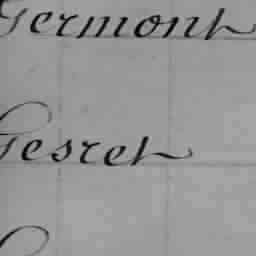 Germont
Gesret